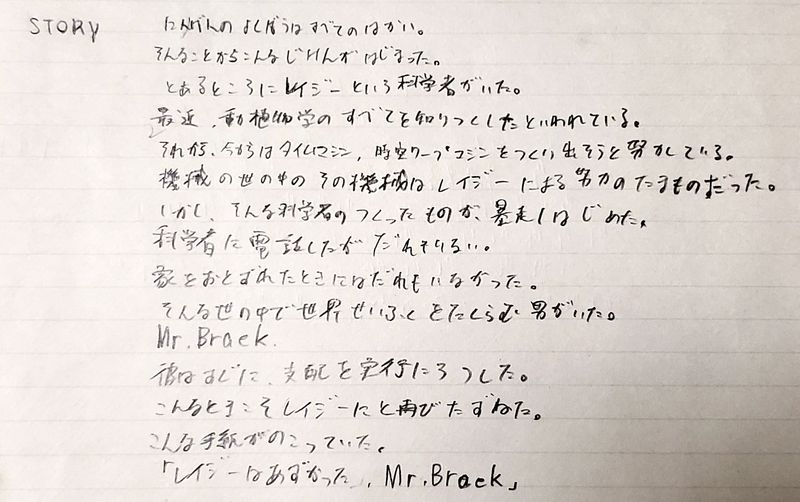 STORY
にんげんのよくぼうはすべてのはかい。
そんなことからこんなじけんがはじまった。
とあるところにレイジーという科学者がいた。
最近、動植物学のすべてを知りつくしたといわれている。
それから、今からはタイムマシン、時空ワープマシンをつくり出そうと努力している。
機械の世の中のその機械はレイジーによる努力のたまものだった。
しかし、そんな科学者のつくったものが、暴走しはじめた。
科学者に電話したがだれもいない。
家をおとずれたときにはだれもいなかった。
そんな世の中で世界せいふくをたくらむ男がいた。
Mr.Braek.
彼はすぐに、支配を実行にうつした。
こんなときこそレイジーにと再びたずねた。
こんな手紙がのこっていた。
「レイジーはあずかった、Mr.Braek」